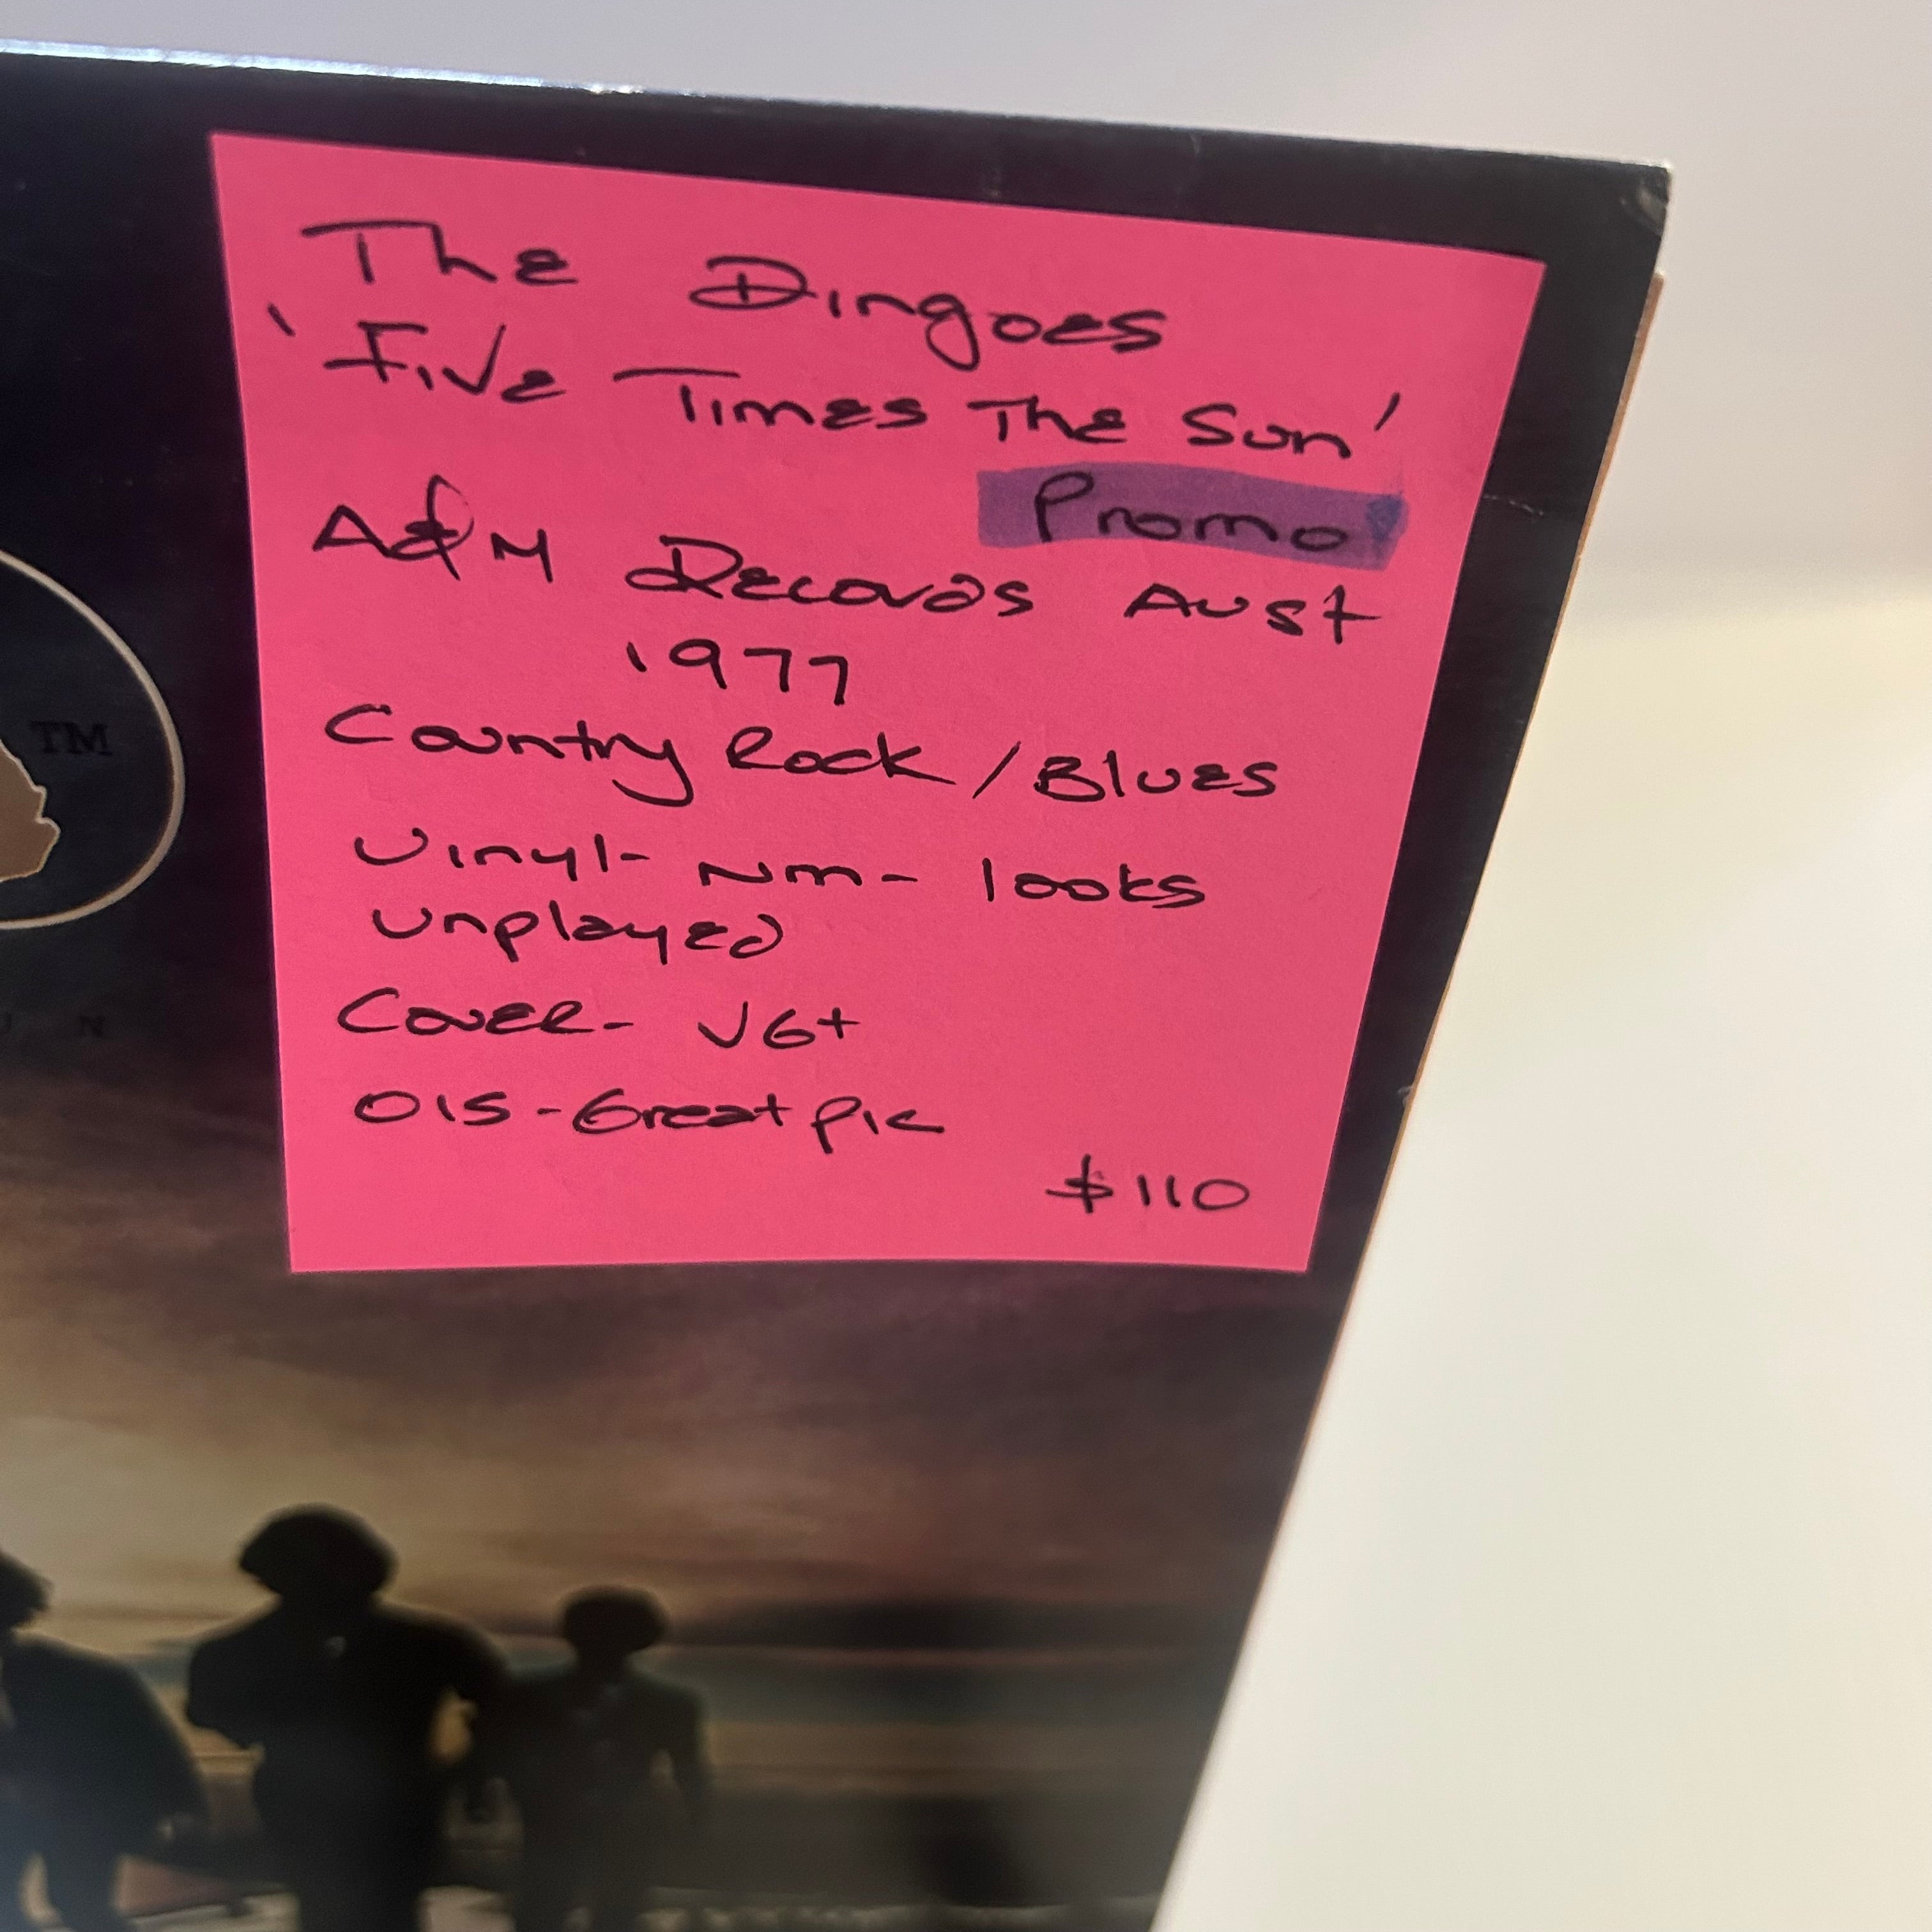 The Dingoes
'Five Times The Sun'
Promo
A&M Records Aust
1977
Country Rock / Blues
Vinyl- NM- looks
unplayed
Cover- VG+
OIS - Great pic
$110
TM
U N